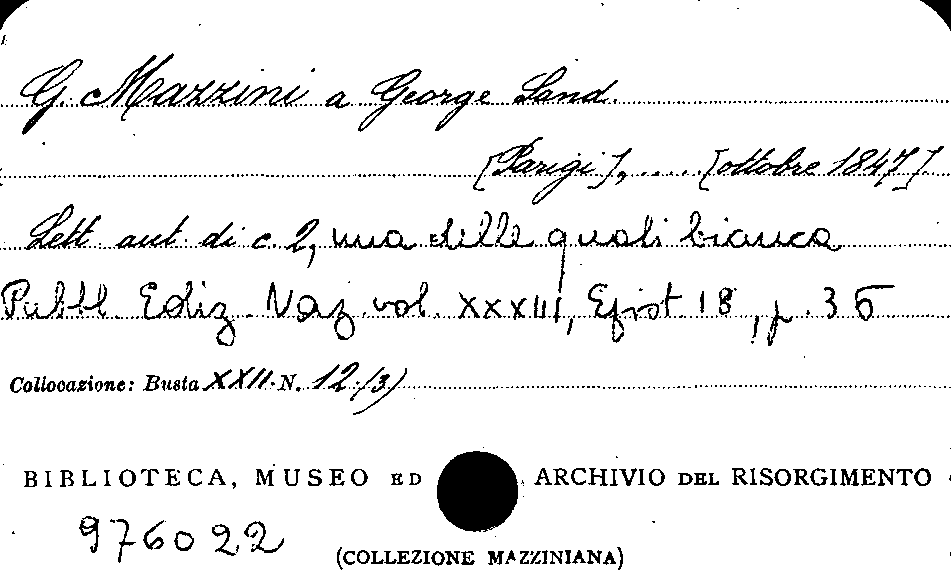 G. Mazzini a George Sand.
[Parigi], ..... [ottobre 1847].
Lett. aut. di c. 2, una delle quali bianca
Pubbl. Ediz. Naz. vol. XXXIII, Epist. 18, p. 35
Collocazione: Busta XXII. N. 12 (3)
BIBLIOTECA, MUSEO ED ARCHIVIO DEL RISORGIMENTO
976022
(COLLEZIONE MAZZINIANA)